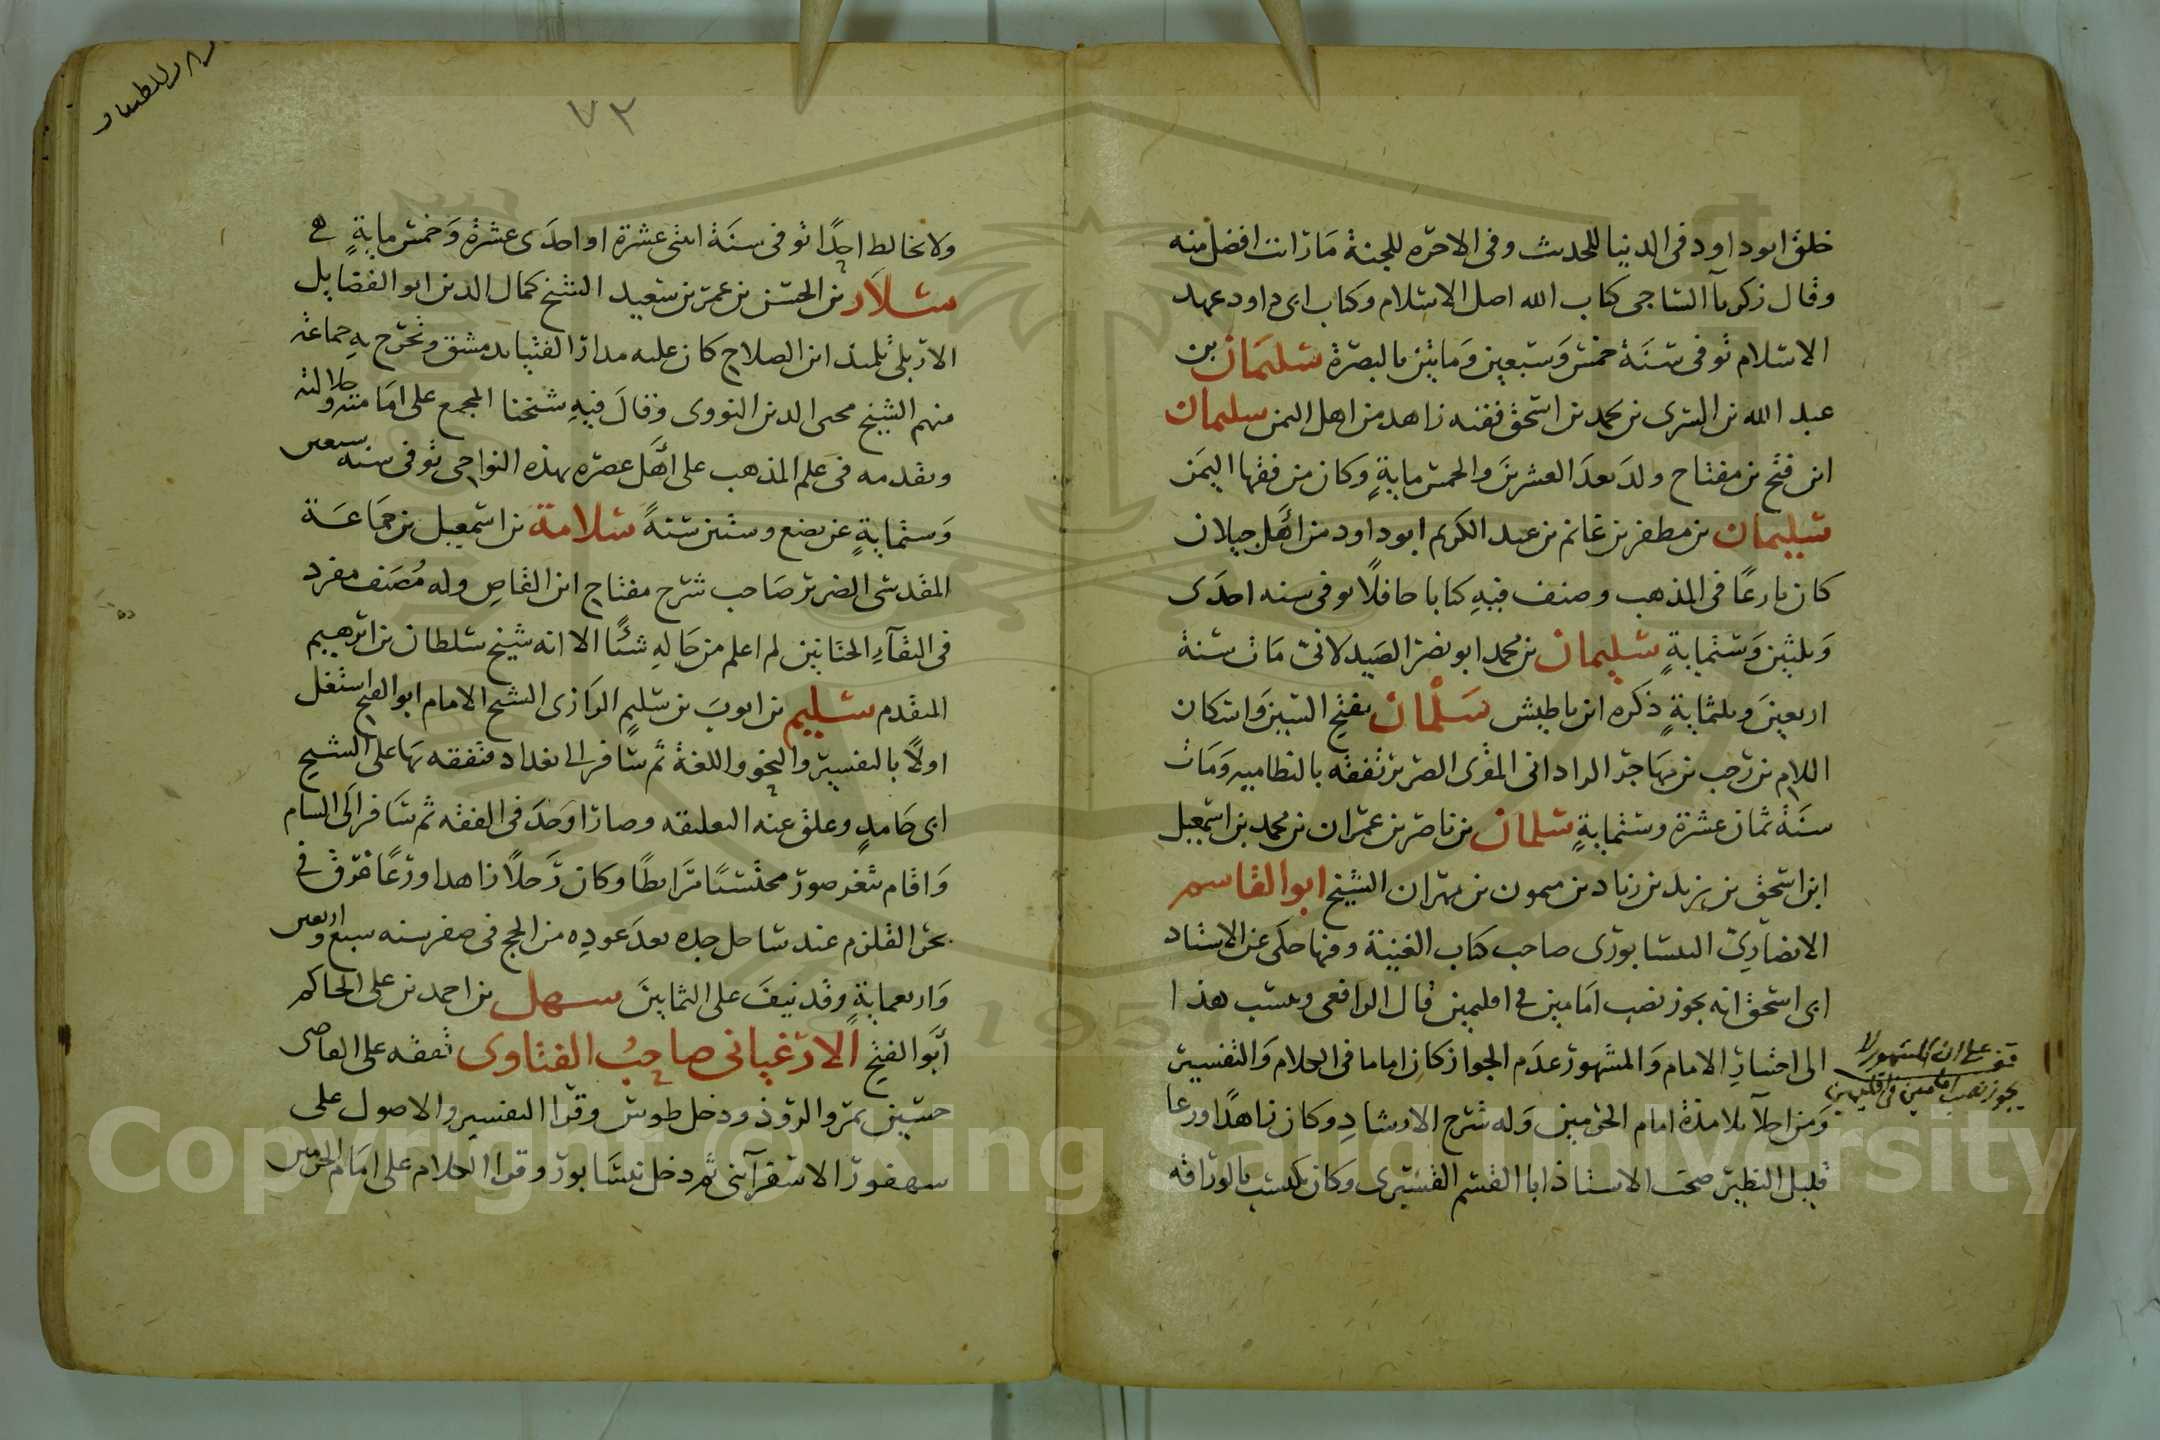 خلق ابو داود فى الدنيا للحديث وفى الاخره للجنة مَا رَاٮت افضل منه
وقال زكريآ الساجى كتاب الله اصل الاسلام وكتاب ابى داود عهد
الاسلام توفى سَنَة خمسْ وَسَبعين وَمايتين بالبصرَة سليمَان بن
عبد الله بن السرى بن محمد بن اسحق فقيه زاهد من اهل اليمن سليمان
ابن فتح بن مفتاح ولدَ بعدَ العشرينَ والخمس مايةٍ وكان من فقها اليمَن
سليمان بن مظفر بن غانم بن عبد الكريم ابو داود من اهَل جيلان
كان بارعًا فى المذهب وصنف فيهِ كتابا حافلًا توفى سنه احدَى
وَثلثين وَستمايةٍ سليمان بن محمد ابو نصر الصَيدلانى مَات سنة
اربعينَ وثلثمايةٍ ذكرَه ابن باطيش سَلْمان بفتح السين وَاسكان
اللام بن رَجب بن مهَاجر الراذانى المقرى الضرير تفقه بالنظاميهِ وَمَات
سنَة ثمان عشرَة وستمايةٍ سلمان بن ناصر بن عمرَان بن محمد بن اسمعيل
ابن اسحق بن يزيد بن زياد بن ميمون بن مهران الشيخ ابو القاسم
الانصَارِىّ النيسابورى صاحب كتاب الغنية وفيها حكى عن الاستاد
ابى اسحق انه يجوز نصب امَامين فى اقليمين قال الرافعى وينسب هذا
الى اختيارِ الامام وَالمشهور عدَم الجواز كان اماما فى الكلام وَالتفسير
وَمن اجلآ تلامذة امام الحرمين وَله شرح الارشادِ وكان زاهدًا ورعا
قليل النظير صحب الاستاذ ابا القسم القشيرى وَكان يكتسب بالوراقه
قف على ان المشهور لا
يجوز نصب امامين فى اقليمين
٧٣
ولا يخالط احدًا توفى سنَة اثنى عشرة او احدَى عشرَة وَخمس مايةٍ
سلاَّر بن الحسَن بن عمرَ بن سَعيد الشيخ كمال الدين ابو الفضايل
الاربلى تلميذ ابن الصلاح كان عليه مدار الفتيا بدمشق وتخرّج بهِ جماعَة
منهم الشيخ محيى الدين النووى وقالَ فيهِ شيخنا المجمع على امَامته وجلالته
وتقدمه فى علم المذهب على اهَل عصرَه بهذه النواحى توفى سنه سبعين
وَستمايةٍ عن بضع وستين سَنةً سَلامة بن اسمعيل بن جمَاعَة
المقدسى الضرير صَاحب شرح مفتاح ابن القاصِ وله مُصَنف مفرد
فى التقآءِ الختانين لم اعلم من حَالهِ شيئًا الا انه شيخ سُلطان بن ابرهيم
المقدم سُليم بن ايوبَ بن سُليمٍ الرَازى الشيخ الامام ابو الفتح اشتغل
اولًا بالتفسير والنحو واللغة ثم سَافر الى بغداد فتفقه بهَا على الشيخ
ابى حَامدٍ وعلق عنه التعليقه وصارَ اوحَدَ فى الفقه ثم سَافر الَى الشام
وَاقام بثغر صور محتسبًا مرَابطًا وكان رَجلًا زاهدا ورَعًا غرق فى
بحر القلزم عند ساحل جده بعدَ عَودِه من الحج فى صفر سنه سبع واربعين
وَاربعمايةٍ وقد نيفَ على الثمانينَ سهل بن احمد بن على الحاكم
اَبُو الفتح الارغيانى صاحبُ الفتاوى تفقه على القاضى
حسَين بمرو الروذ ودخل طوس وقرا التفسير والاصول على
شهفور الاسفرآينى ثم دخل نيسَابور وقرا الكلام على امَام الحرَمين
Copyright © King Saud University
1957